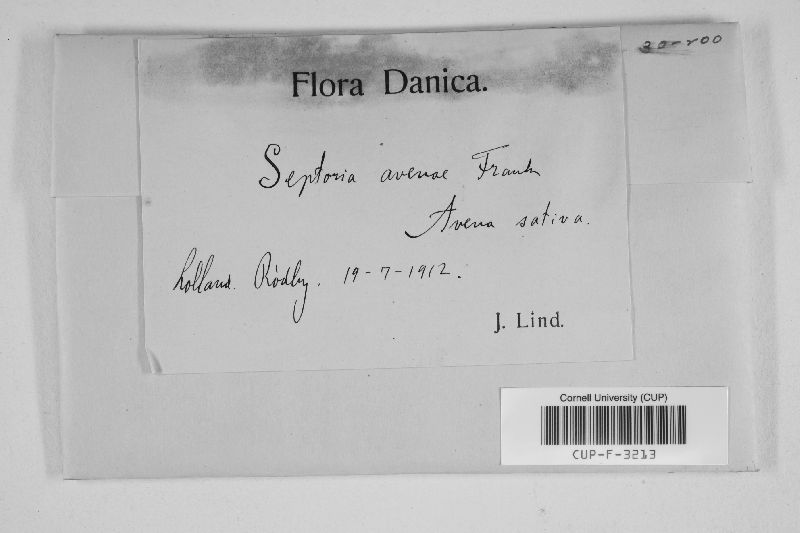 Flora Danica.
Septoria avenae Frank
Avena sativa.
Lolland. Rödby. 19-7-1912.
J. Lind.
Cornell University (CUP)
CUP-F-3213